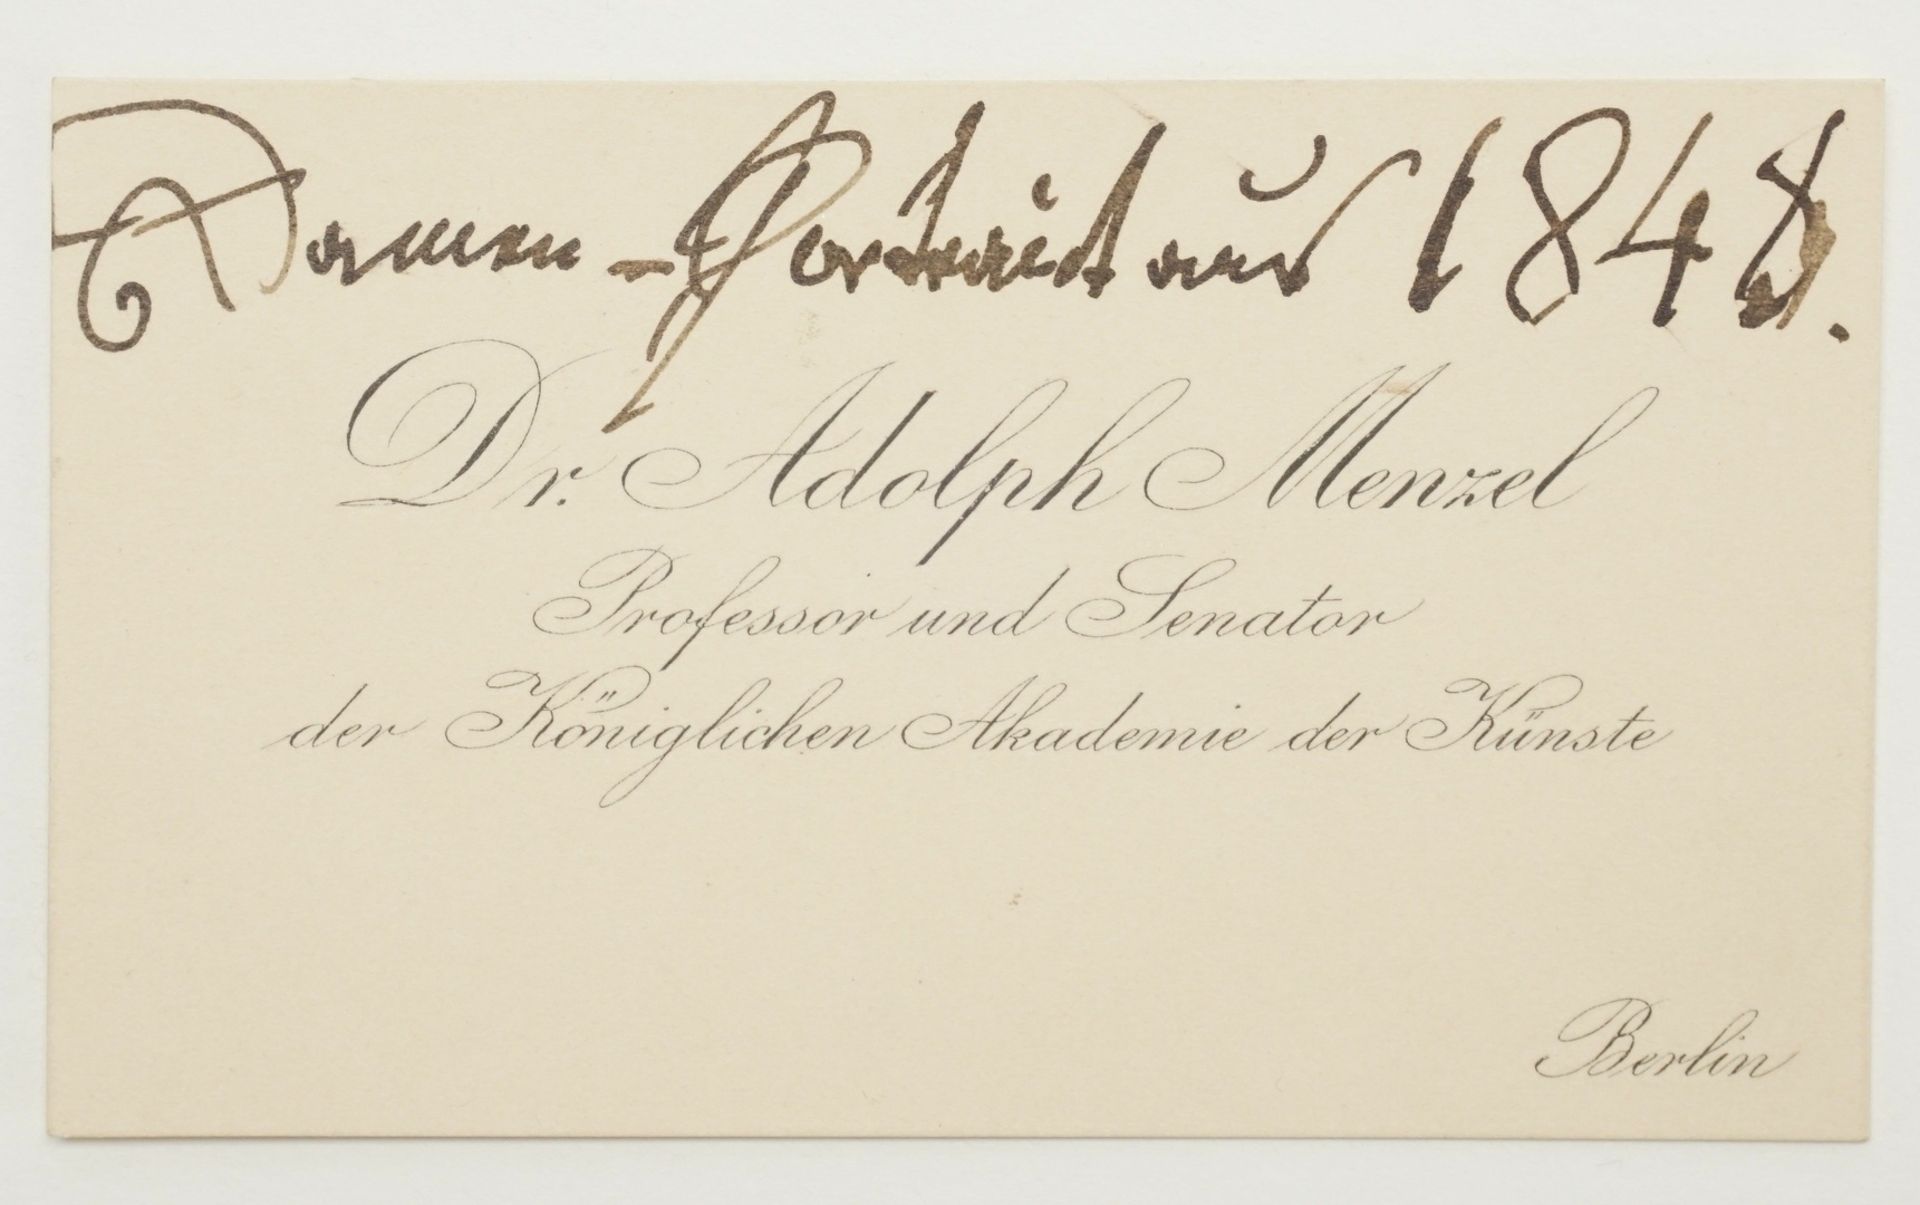 Damen-Portrait aus 1848.
Dr. Adolph Menzel
Professor und Senator
der Königlichen Akademie der Künste
Berlin